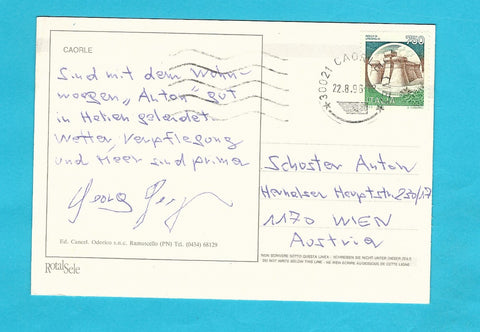 CAORLE
Sind mit dem Wohn-
wagen „Anton" gut
in Italien gelandet
Wetter, Verpflegung
und Meer sind prima
Georg
Ed. Cancel. Oderico s.n.c. Ramuscello (PN) Tel. (0434) 68129
Rotal Sele
30021 CAORLE
22.8.96
750
ITALIA
Schoster Anton
Hernalser Hauptstr 230/17
1170 WIEN
Austria
NON SCRIVERE SOTTO QUESTA LINEA - SCHREIBEN SIE NICHT UNTER DIESER ZEILE
DO NOT WRITE BELOW THIS LINE - NE RIEN ECRIRE AU-DESSOUS DE CETTE LIGNE